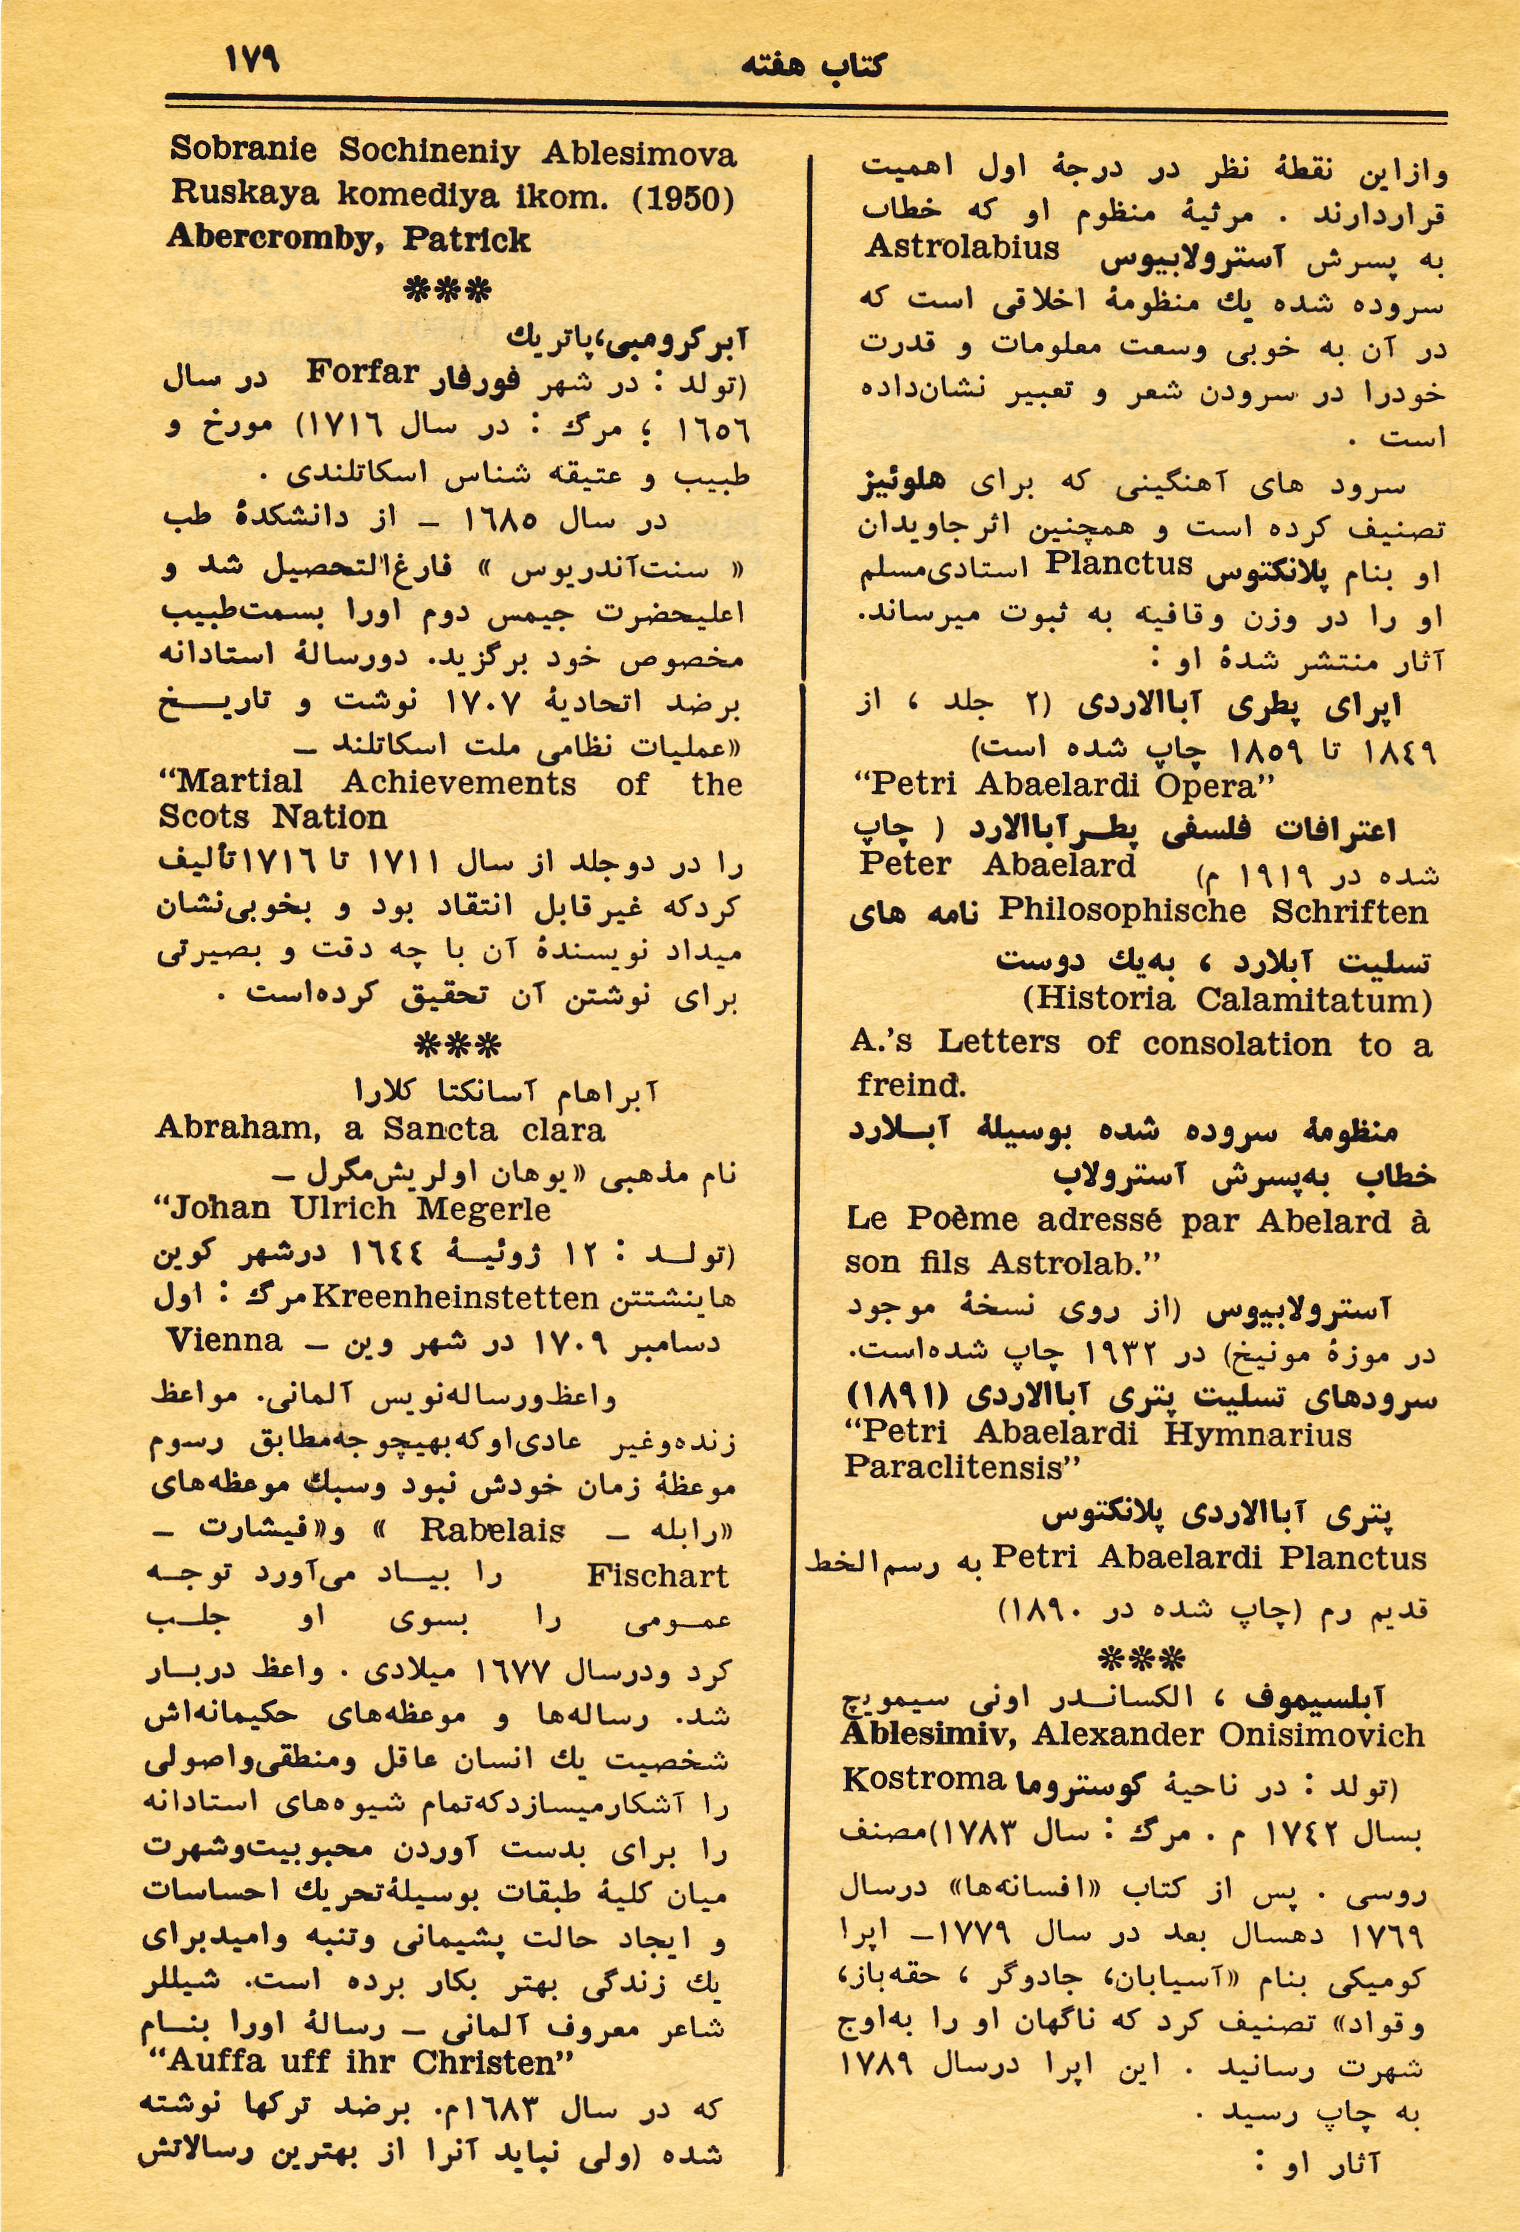 کتاب هفته ۱۷۹
وازاین نقطهٔ نظر در درجهٔ اول اهمیت
قراردارند . مرثیهٔ منظوم او که خطاب
به پسرش آسترولابیوس Astrolabius
سروده شده یك منظومهٔ اخلاقی است که
در آن به خوبی وسعت معلومات و قدرت
خودرا در سرودن شعر و تعبیر نشان‌داده
است .
سرود های آهنگینی که برای هلوئیز
تصنیف کرده است و همچنین اثرجاویدان
او بنام پلانکتوس Planctus استادی‌مسلم
او را در وزن وقافیه به ثبوت میرساند.
آثار منتشر شدهٔ او :
اپرای پطری آباالاردی (۲ جلد ، از
۱۸٤۹ تا ۱۸٥۹ چاپ شده است)
“Petri Abaelardi Opera”
اعترافات فلسفی پطـرآباالارد ( چاپ
شده در ۱۹۱۹ م) Peter Abaelard
Philosophische Schriften نامه های
تسلیت آبلارد ، به‌یك دوست
(Historia Calamitatum)
A.’s Letters of consolation to a
freind.
منظومهٔ سروده شده بوسیلهٔ آبـلارد
خطاب به‌پسرش آسترولاب
Le Poème adressé par Abelard à
son fils Astrolab.”
آسترولابیوس (از روی نسخهٔ موجود
در موزهٔ مونیخ) در ۱۹۳۲ چاپ شده‌است.
سرودهای تسلیت پتری آباالاردی (۱۸۹۱)
“Petri Abaelardi Hymnarius
Paraclitensis”
پتری آباالاردی پلانکتوس
Petri Abaelardi Planctus به رسم‌الخط
قدیم رم (چاپ شده در ۱۸۹۰)
***
آبلسیموف ، الکسانـدر اونی سیمویچ
Ablesimiv, Alexander Onisimovich
(تولد : در ناحیهٔ کوستروما Kostroma
بسال ۱۷٤۲ م . مرگ : سال ۱۷۸۳)مصنف
روسی . پس از کتاب «افسانه‌ها» درسال
۱۷٦۹ دهسال بعد در سال ۱۷۷۹ـ اپرا
کومیکی بنام «آسیابان، جادوگر ، حقه‌باز،
وقواد» تصنیف کرد که ناگهان او را به‌اوج
شهرت رسانید . این اپرا درسال ۱۷۸۹
به چاپ رسید .
آثار او :
Sobranie Sochineniy Ablesimova
Ruskaya komediya ikom. (1950)
Abercromby, Patrick
***
آبرکرومبی،پاتریك
(تولد : در شهر فورفار Forfar در سال
۱٦٥٦ ؛ مرگ : در سال ۱۷۱٦) مورخ و
طبیب و عتیقه شناس اسکاتلندی .
در سال ۱٦۸٥ ـ از دانشکدهٔ طب
« سنت‌آندریوس » فارغ‌التحصیل شد و
اعلیحضرت جیمس دوم اورا بسمت‌طبیب
مخصوص خود برگزید. دورسالهٔ استادانه
برضد اتحادیهٔ ۱۷۰۷ نوشت و تاریـــخ
«عملیات نظامی ملت اسکاتلند ـ
“Martial Achievements of the
Scots Nation
را در دوجلد از سال ۱۷۱۱ تا ۱۷۱٦تألیف
کردکه غیرقابل انتقاد بود و بخوبی‌نشان
میداد نویسندهٔ آن با چه دقت و بصیرتی
برای نوشتن آن تحقیق کرده‌است .
***
آبراهام آسانکتا کلارا
Abraham, a Sancta clara
نام مذهبی «یوهان اولریش‌مگرل ـ
“Johan Ulrich Megerle
(تولـد : ۱۲ ژوئیـهٔ ۱٦٤٤ درشهر کوین
هاینشتتن Kreenheinstetten مرگ : اول
دسامبر ۱۷۰۹ در شهر وین ـ Vienna
واعظ‌ورساله‌نویس آلمانی. مواعظ
زنده‌وغیر عادی‌اوکه‌بهیچوجه‌مطابق رسوم
موعظهٔ زمان خودش نبود وسبك موعظه‌های
«رابله ـ Rabelais » و«فیشارت ـ
Fischart را بیـاد می‌آورد توجـه
عمـومی را بسوی او جلـب
کرد ودرسال ۱٦۷۷ میلادی . واعظ دربـار
شد. رساله‌ها و موعظه‌های حکیمانه‌اش
شخصیت یك انسان عاقل ومنطقی‌واصولی
را آشکارمیسازدکه‌تمام شیوه‌های استادانه
را برای بدست آوردن محبوبیت‌وشهرت
میان کلیهٔ طبقات بوسیلهٔ‌تحریك احساسات
و ایجاد حالت پشیمانی وتنبه وامیدبرای
یك زندگی بهتر بکار برده است. شیللر
شاعر معروف آلمانی ـ رسالهٔ اورا بنـام
“Auffa uff ihr Christen”
که در سال ۱٦۸۳م. برضد ترکها نوشته
شده (ولی نباید آنرا از بهترین رسالاتش